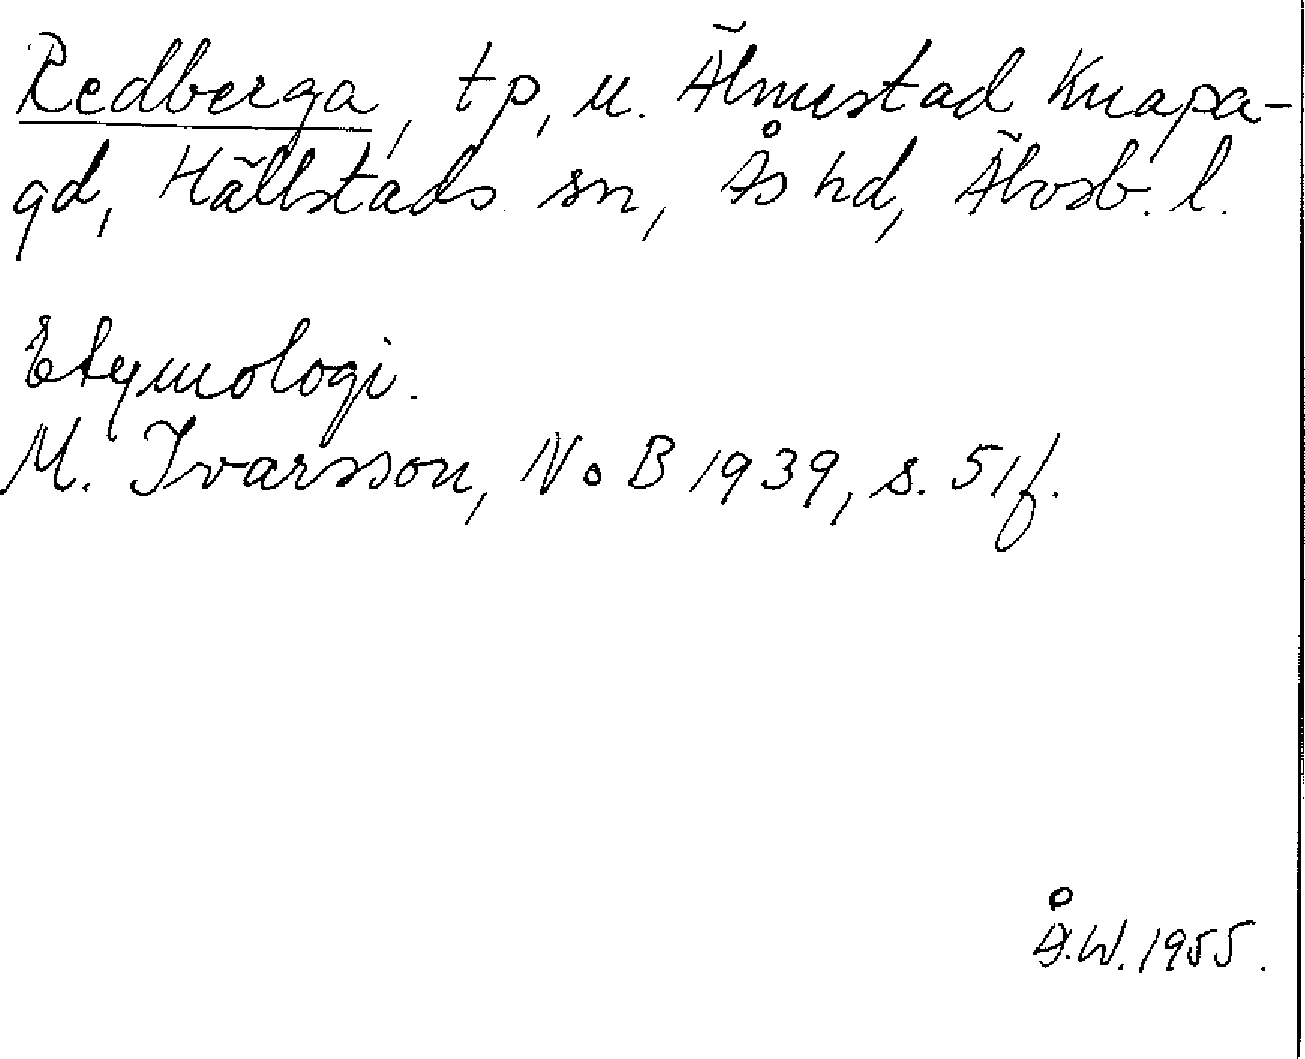 Redberga, tp, u. Älmestad Knapa-
gd, Hällstads sn, Ås hd, Älvsb. l.
Etymologi.
M. Ivarsson, NoB 1939, s. 51f.
Å.W. 1955.